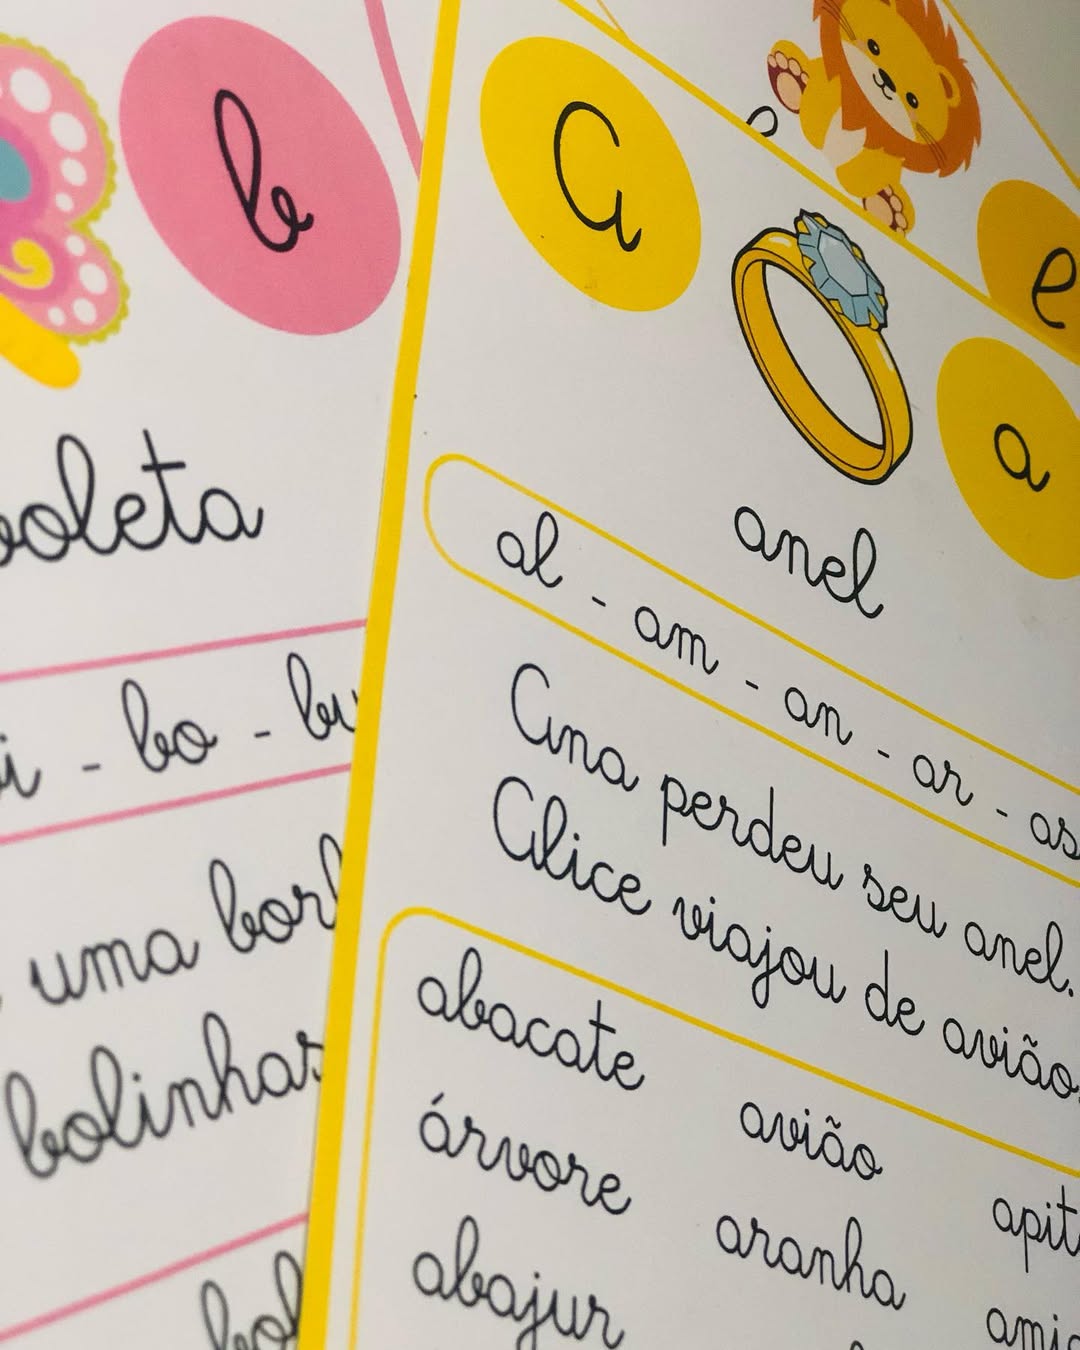 b
boleta
bo - bu
uma
bolinhas
A
a
e
anel
al - am - an - ar - as
Ana perdeu seu anel.
Alice viajou de avião.
abacate avião
árvore aranha
abajur